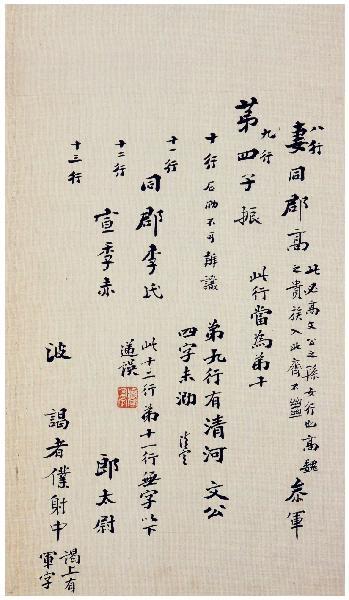 八行 妻同郡高 此必高文公之孫女行也高魏之貴族入北齊不 參軍
九行 第四子振 此行當為弟十
十行 后泐不可辨識 弟九行有清河文公四字未泐
十一行 同郡李氏 此十二行弟十一行無字以下
十二行 宣季赤 郎太尉
十三行 波 謁者僕射中 謁上有軍字